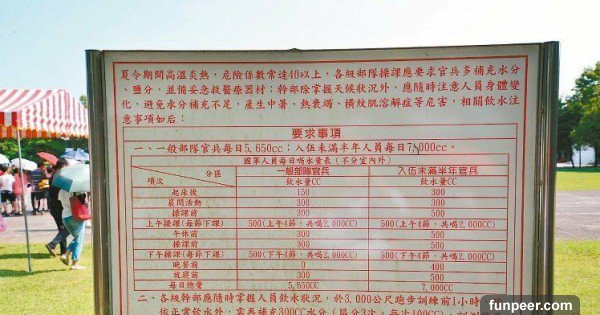 夏令期間高溫炎熱，危險係數常達40以上，各級部隊操課應要求官兵多補充水分
、鹽分，並備妥急救醫療器材；幹部除掌握天候狀況外，應隨時注意人員身體變
化，避免水分補充不足，產生中暑、熱衰竭、橫紋肌溶解症等危害，相關飲水注
意事項如后：
要求事項
一、一般部隊官兵每日5,650cc；入伍未滿半年人員每日7,000cc。
國軍人員每日喝水量表（不分室內外）
區分 一般部隊官兵 入伍未滿半年官兵
項次 飲水量CC 飲水量CC
起床後 150 300
晨間活動 300 300
操課前 300 500
上午操課(每節下課) 500(上午4節，共喝2,000CC) 500(上午4節，共喝2,000CC)
午休前 300 500
操課前 300 500
下午操課(每節下課) 500(下午4節，共喝2,000CC) 500(下午4節，共喝2,000CC)
晚餐前 0 400
就寢前 300 500
每日總量 5,650 7,000
二、各級幹部應隨時掌握人員飲水狀況，於3,000公尺跑步訓練前1小時
依正常飲水外，需再補充300CC水分（區分3次，每次100CC）
funpeer.com